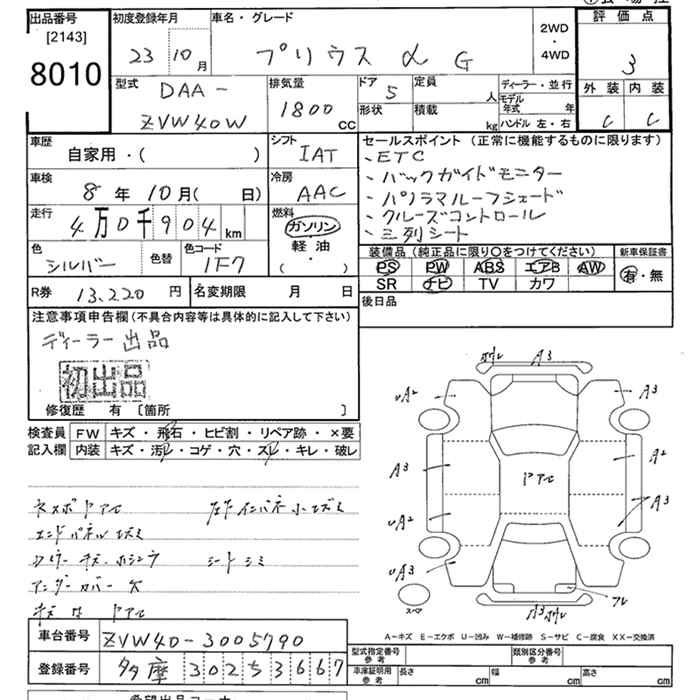 出品番号
[2143]
8010
初度登録年月
23 10月
車名・グレード
プリウス α G
2WD
・
4WD
評価点
3
外装 内装
C C
型式
DAA-
ZVW40W
排気量
1800
cc
ドア 5
形状
定員 人
積載 kg
ディーラー・並行
モデル年式 年
ハンドル 左・右
車歴
自家用・( )
シフト
IAT
車検
8 年 10 月( 日)
冷房
AAC
走行
4万0千904 km
燃料
ガソリン
・
軽油
( )
色
シルバー
色替
色コード
1F7
セールスポイント (正常に機能するものに限ります)
、ETC
、バックガイドモニター
、パノラマルーフシェード
、クルーズコントロール
、三列シート
装備品 (純正品に限り○をつけてください)
PS PW ABS エアB AW
SR ナビ TV カワ
新車保証書
有・無
R券 13,220 円
名変期限 月 日
後日品
注意事項申告欄 (不具合内容等は具体的に記入して下さい)
ディーラー出品
初出品
修復歴 有 〔箇所 〕
検査員
記入欄
FW キズ・飛石・ヒビ割・リペア跡・×要
内装 キズ・汚レ・コゲ・穴・スレ・キレ・破レ
エンドパネル
アンダーカバー 欠
シートシミ
A3
A3
A2
A3
A2
A3
A2
A3
A3
スペア
A-キズ E-エクボ U-凹み W-補修跡 S-サビ C-腐食 XX-交換済
車台番号 ZVW40-3005790
登録番号 多摩 302 5 3667
型式指定番号
参考
類別区分番号
参考
車庫証明用
参考
長さ cm 幅 cm 高さ cm